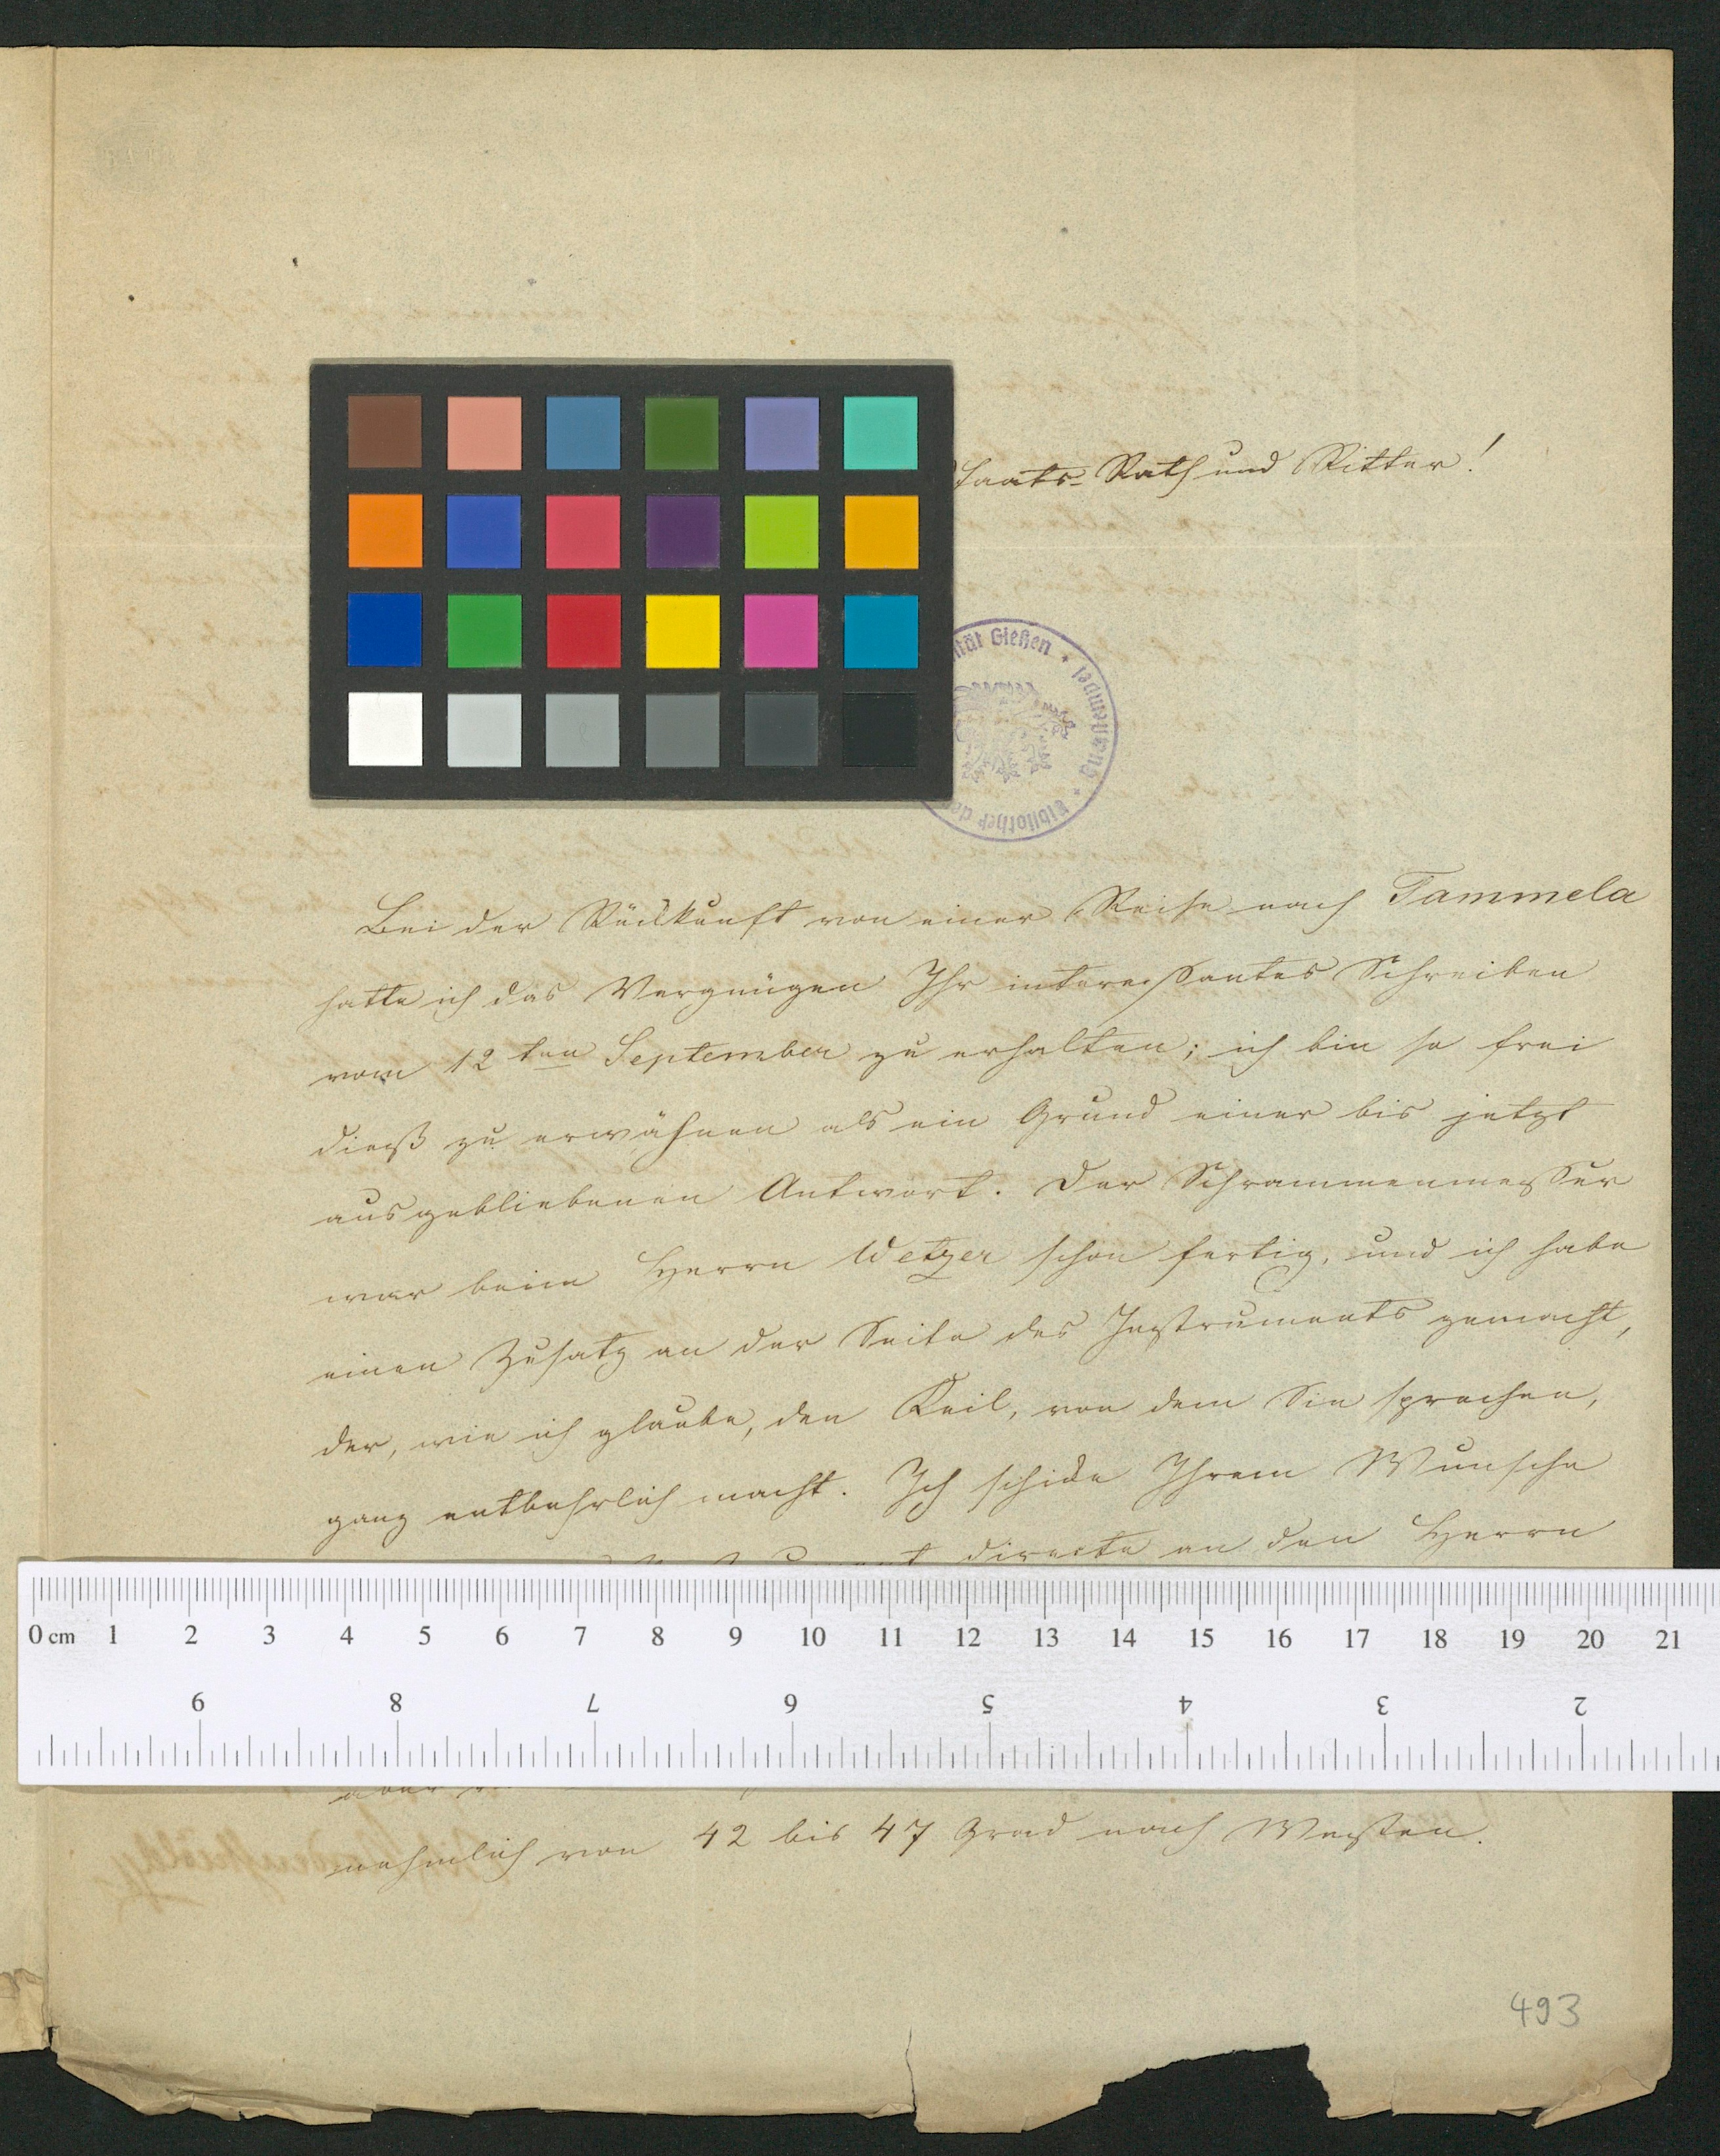 Staats-Rath und Ritter!
ität Gießen + Tauschstempel + Bibliothek der
Bei der Rückkunft von einer Reise nach Tammela
hatte ich das Vergnügen Ihr interessantes Schreiben
vom 12ten September zu erhalten; ich bin so frei
dieß zu erwähnen als ein Grund einer bis jetzt
ausgebliebenen Antwort. Der Schrammenmesser
war beim Herrn Wetzer schon fertig, und ich habe
einen Zusatz an der Seite des Instruments gemacht,
der, wie ich glaube, den Keil, von dem Sie sprachen,
ganz entbehrlich macht. Ich schicke Ihrem Wunsche
directe an den Herrn
0 cm 1 2 3 4 5 6 7 8 9 10 11 12 13 14 15 16 17 18 19 20 21
9 8 7 6 5 4 3 2
aber
nehmlich von 42 bis 47 Grad nach Westen.
493